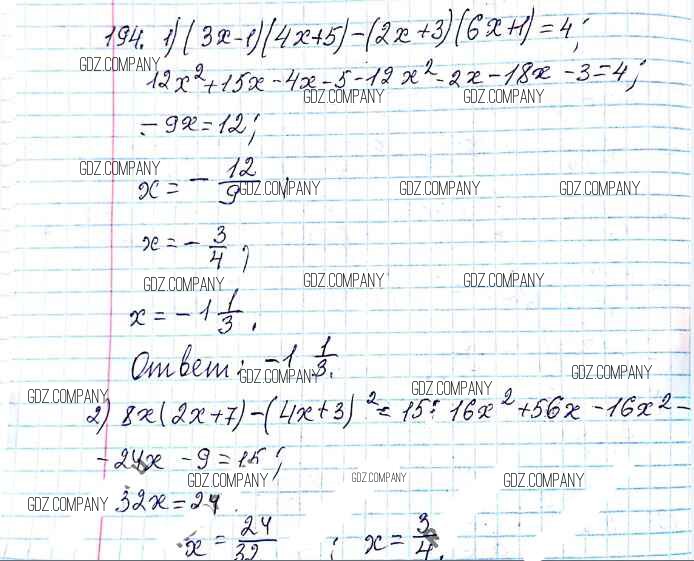 194. 1) (3x-1)(4x+5)-(2x+3)(6x+1)=4;
GDZ.COMPANY
12x²+15x-4x-5-12x²-2x-18x-3=4;
GDZ.COMPANY GDZ.COMPANY
-9x=12;
GDZ.COMPANY
x = - 12/9 ;
GDZ.COMPANY GDZ.COMPANY GDZ.COMPANY
x = - 3/4 ;
GDZ.COMPANY GDZ.COMPANY GDZ.COMPANY
x = -1 1/3 .
Ответ: -1 1/3.
GDZ.COMPANY GDZ.COMPANY
GDZ.COMPANY GDZ.COMPANY
2) 8x(2x+7)-(4x+3)²=15: 16x²+56x-16x²-
-24x -9=15;
GDZ.COMPANY GDZ.COMPANY GDZ.COMPANY
GDZ.COMPANY 32x=24
x = 24/32 ; x = 3/4.